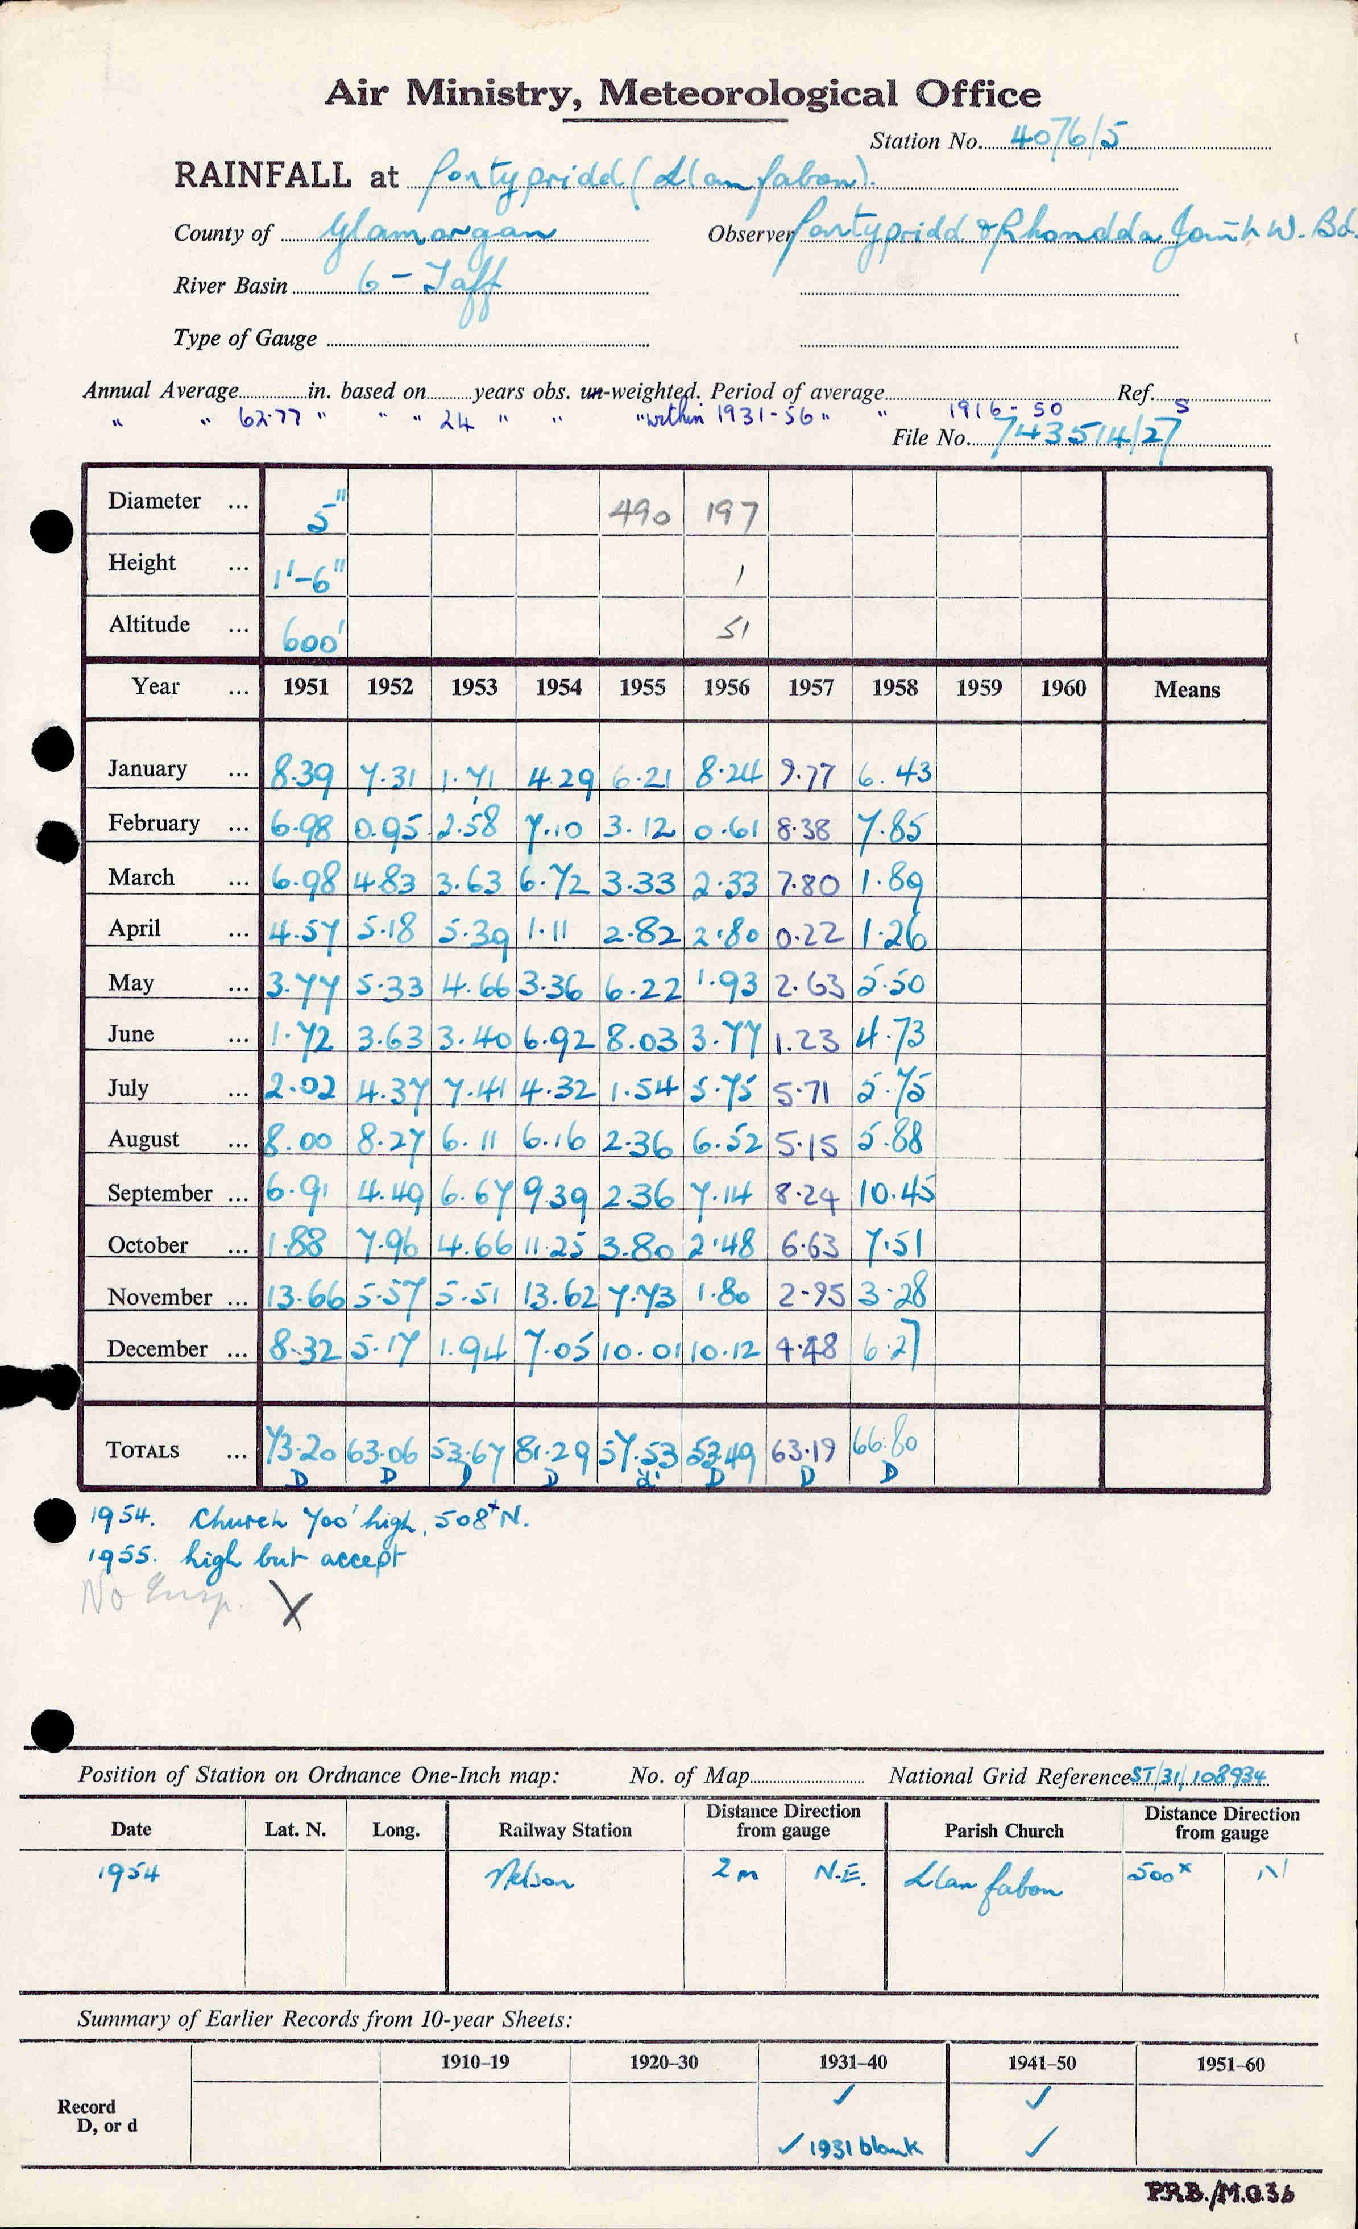 Air Ministry, Meteorological Office
Station No. 4076/5
RAINFALL at Pontypridd (Llanfabon).
County of Glamorgan Observer Pontypridd & Rhondda Joint W. Bd.
River Basin 6 - Taff
Type of Gauge
Annual Average in. based on years obs. un-weighted. Period of average Ref.
" " 62.77 " " " 24 " " "within 1931-56" " 1916-50 S
File No. 743514/27
Diameter ... 5" 490 197
Height ... 1'-6" 1
Altitude ... 600' 51
Year ... 1951 1952 1953 1954 1955 1956 1957 1958 1959 1960 Means
January ... 8.39 7.31 1.71 4.29 6.21 8.24 9.77 6.43
February ... 6.98 0.95 2.58 7.10 3.12 0.61 8.38 7.85
March ... 6.98 4.83 3.63 6.72 3.33 2.33 7.80 1.89
April ... 4.57 5.18 5.39 1.11 2.82 2.80 0.22 1.26
May ... 3.77 5.33 4.66 3.36 6.22 1.93 2.63 5.50
June ... 1.72 3.63 3.40 6.92 8.03 3.77 1.23 4.73
July ... 2.02 4.37 7.41 4.32 1.54 5.75 5.71 5.75
August ... 8.00 8.27 6.11 6.16 2.36 6.52 5.15 5.88
September ... 6.91 4.49 6.67 9.39 2.36 7.14 8.24 10.45
October ... 1.88 7.96 4.66 11.25 3.80 2.48 6.63 7.51
November ... 13.66 5.57 5.51 13.62 7.73 1.80 2.95 3.28
December ... 8.32 5.17 1.94 7.05 10.01 10.12 4.48 6.27
TOTALS ... 73.20 63.06 53.67 81.29 57.53 53.49 63.19 66.80
D D D D d D D D
1954. Church 700' high, 508x N.
1955. high but accept
No Insp. X
Position of Station on Ordnance One-Inch map: No. of Map National Grid Reference ST/31/108934
Date Lat. N. Long. Railway Station Distance Direction from gauge Parish Church Distance Direction from gauge
1954 Nelson 2m N.E. Llanfabon 500x N
Summary of Earlier Records from 10-year Sheets:
1910-19 1920-30 1931-40 1941-50 1951-60
Record ✓ ✓
D, or d ✓ 1931 blank ✓
P.R.B./M.O.36